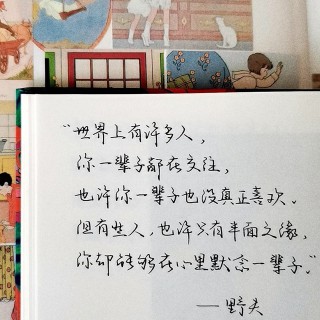 “世界上有许多人，
你一辈子都在交往，
也许你一辈子也没真正喜欢。
但有些人，也许只有半面之缘，
你却能够在心里默念一辈子。”
——野夫